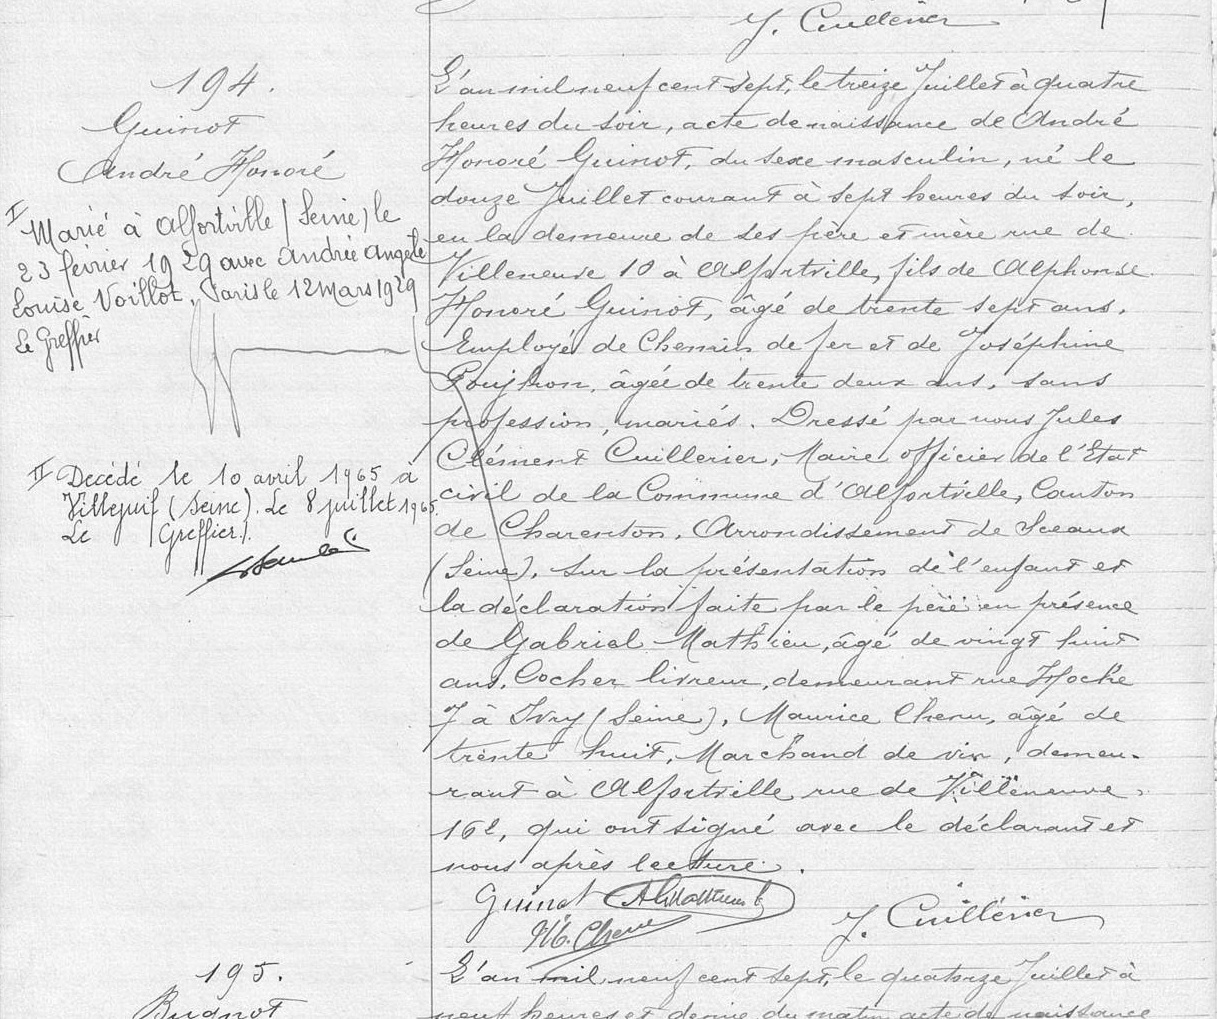 J. Cuillerier
194.
Guinot
André Honoré
I
Marié à Alfortville (Seine) le
23 février 1929 avec Andrée Angèle
Louise Voillot. Paris le 12 mars 1929
Le Greffier
II Décédé le 10 avril 1965 à
Villejuif (Seine). Le 8 juillet 1965.
Le Greffier.
L'an mil neuf cent sept, le treize Juillet à quatre
heures du soir, acte de naissance de André
Honoré Guinot, du sexe masculin, né le
douze Juillet courant à sept heures du soir,
en la demeure de ses père et mère rue de
Villeneuve 10 à Alfortville, fils de Alphonse
Honoré Guinot, âgé de trente sept ans,
Employé de Chemin de fer et de Joséphine
âgée de trente deux ans, sans
profession, mariés. Dressé par nous Jules
Clément Cuillerier, Maire officier de l'Etat
civil de la Commune d'Alfortville, Canton
de Charenton, Arrondissement de Sceaux
(Seine), sur la présentation de l'enfant et
la déclaration faite par le père en présence
de Gabriel Mathieu, âgé de vingt huit
ans, Cocher livreur, demeurant rue Hoche
7 à Ivry (Seine), Maurice Chenu, âgé de
trente huit, Marchand de vin, demeu-
rant à Alfortville rue de Villeneuve,
162, qui ont signé avec le déclarant et
nous après lecture.
Guinot
J. Cuillérier
195.
Bugnot
L'an mil neuf cent sept, le quatorze Juillet à
neuf heures et demie du matin acte de naissance